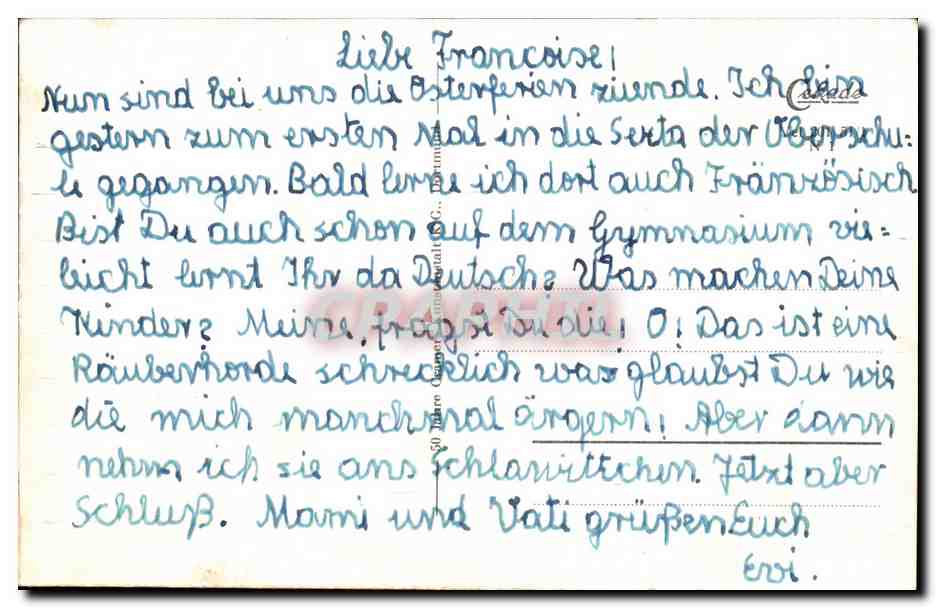 Liebe Françoise!
Nun sind bei uns die Osterferien zuende. Ich bin
gestern zum ersten Mal in die Sexta der Oberschu=
le gegangen. Bald lerne ich dort auch Französisch
Bist Du auch schon auf dem Gymnasium vie=
leicht lernt Ihr da Deutsch? Was machen Deine
Kinder? Meine, fragst Du die! O! Das ist eine
Räuberhorde schrecklich was glaubst Du wie
die mich manchmal ärgern! Aber dann
nehm ich sie ans Schlawittchen. Jetzt aber
Schluß. Mami und Vati grüßen Euch
Evi.
Cekade
50 Jahre Cramers Kunstanstalt KG., Dortmund